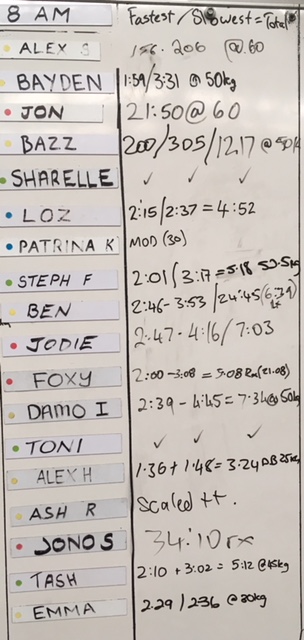 8 AM Fastest / Slowest = Total
ALEX S 156. 206 @ 60
BAYDEN 1:59/3:31 @ 50kg
JON 21:50 @ 60
BAZZ 200/305/1217 @ 50
SHARELLE ✓ ✓ ✓
LOZ 2:15/2:37 = 4:52
PATRINA K MOD (30)
STEPH F 2:01/3:17 = 5:18 52.5kg
BEN 2:46-3:53 /24:45
JODIE 2:47 - 4:16/7:03
FOXY 2:00 -3:08 = 5:08 Rx(21:08)
DAMO I 2:39 - 4:45 = 7:34 @ 50kg
TONI ✓ ✓ ✓
ALEX H 1:36 + 1:48 = 3:24 DB 25kg
ASH R Scaled ++.
JONO S 34:10 rx
TASH 2:10 + 3:02 = 5:12 @45kg
EMMA 2:29 / 2:36 @ 30kg